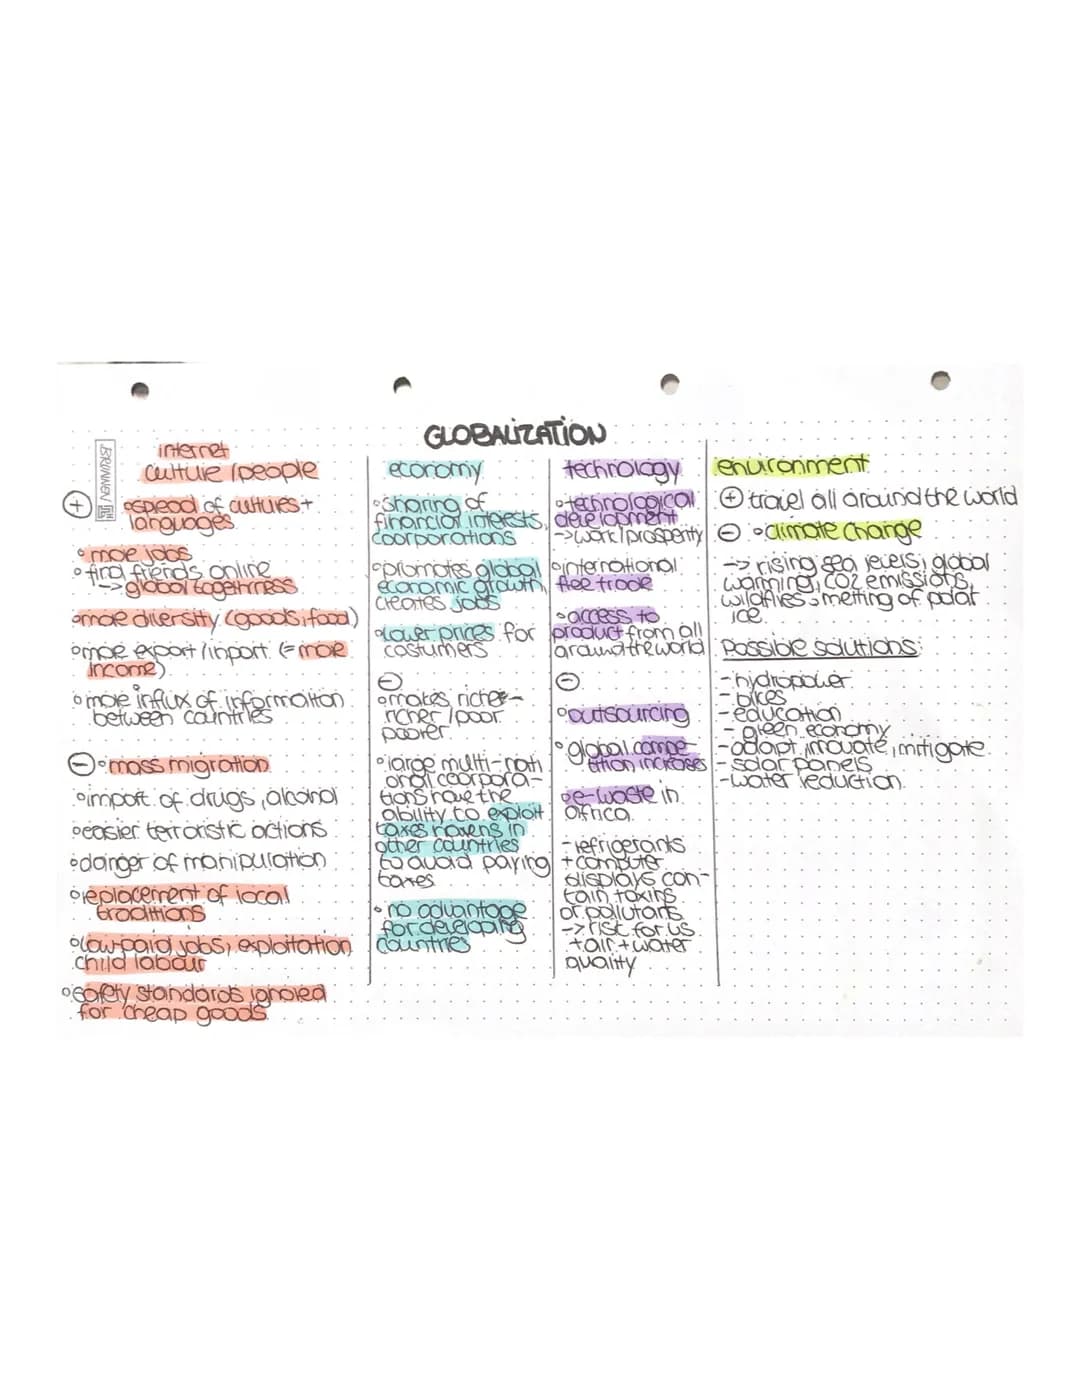 GLOBALIZATION
BRUNNEN
internet
culture/people
+
∘spread of cultures+
languages
∘more jobs
∘find friends online
-> global togehrness
∘more diversity (goods, food)
∘more export/inport (= more
income)
∘more influx of informaiton
between countries
- ∘mass migration
∘import of drugs, alcohol
∘easier terroristic actions
∘danger of manipulation
∘replacement of local
traditions
∘low-paid jobs, exploitation,
child labour
∘safety standards ignored
for cheap goods
economy
∘sharing of
financial interests,
coorporations
∘promotes global
economic growth,
creates jobs
∘lower prices for
costumers
-
∘makes richer-
richer/poor
poorer
∘large multi-nati
onal coorpora-
tions have the
ability to exploit
taxes havens in
other countries
to avoid paying
taxes
∘no advantage
for developing
countries
technology
∘technological
development
->work/prosperity
∘international
free trade
∘access to
product from all
around the world
-
∘outsourcing
∘global compe-
tition increases
∘e-waste in
Africa
-refrigerants
+computer
displays con-
tain toxins
or pollutants
-> risk for us
+air+water
quality
environment
+ travel all around the world
- ∘climate change
-> rising sea levels, global
warming, CO2 emissions,
wildfires, melting of polar
ice
Possible solutions:
-hydropower
- bikes
-education
- green economy
-adapt, innovate, mitigate
- solar panels
-water reduction